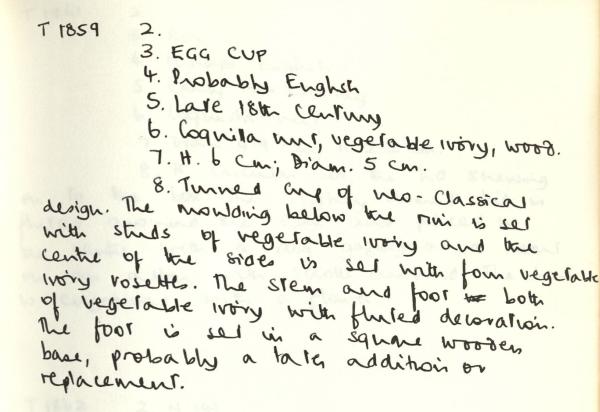 T 1859 2.
3. EGG CUP
4. Probably English
5. Late 18th Century
6. Coquilla nut, vegetable ivory, wood.
7. H. 6 cm; Diam. 5 cm.
8. Turned cup of neo-Classical
design. The moulding below the rim is set
with studs of vegetable ivory and the
centre of the sides is set with four vegetable
ivory rosettes. The stem and foot both
of vegetable ivory with fluted decoration.
The foot is set in a square wooden
base, probably a later addition or
replacement.